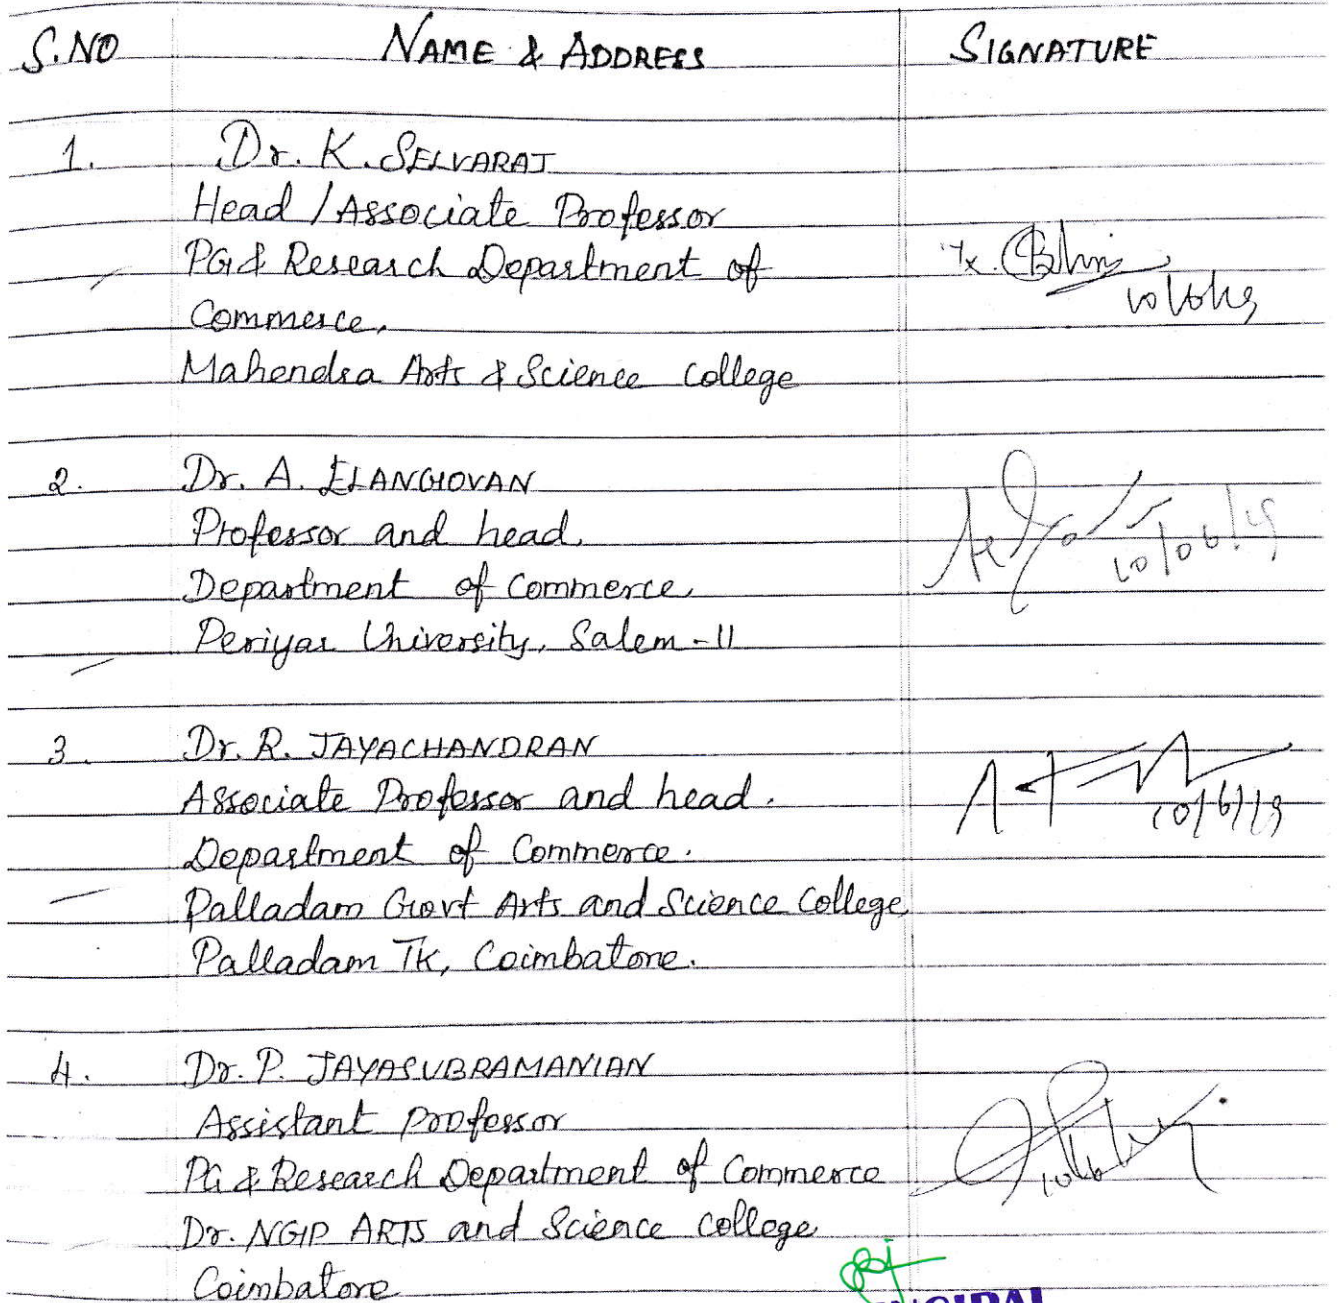 S.NO NAME & ADDRESS SIGNATURE
1. Dr. K. SELVARAJ
Head / Associate Professor
PG & Research Department of
Commerce,
Mahendra Arts & Science College
10/6/19
2. Dr. A. ELANGOVAN
Professor and head,
Department of Commerce,
10/06/19
Periyar University, Salem-11
3. Dr. R. JAYACHANDRAN
Associate Professor and head.
10/6/19
Department of Commerce.
Palladam Govt Arts and Science College,
Palladam TK, Coimbatore.
4. Dr. P. JAYASUBRAMANIAN
Assistant Professor
PG & Research Department of Commerce
Dr. NGP ARTS and Science College
Coimbatore